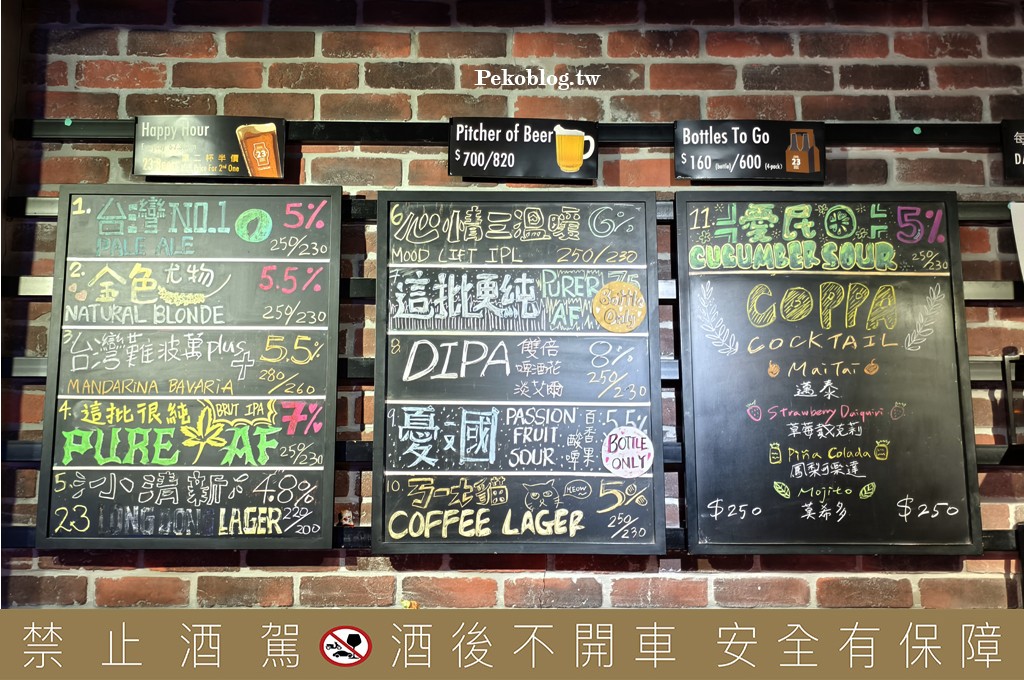 Pekoblog.tw
Happy Hour
二杯半價
23 Beers For 2nd One
Pitcher of Beer
$700/820
Bottles To Go
$160 (bottle)/600 (4-pack)
每
1. 台灣NO.1 5%
PALE ALE 250/230
2. 金色尤物 5.5%
NATURAL BLONDE 250/230
3. 台灣難波萬plus+ 5.5%
MANDARINA BAVARIA 280/260
4. 這批很純 BRUT IPA 7%
PURE AF 250/230
5. 小清新 4.8%
23 LONG DONG LAGER 220/200
6. 心情三溫暖 6%
MOOD LIFT IPL 250/230
7. 這批更純 PURER AF 7.5
Bottle Only!
8. DIPA 雙倍啤酒花淡艾爾 8%
250/230
9. 憂國 PASSION FRUIT SOUR 百香果酸啤 5.5%
BOTTLE ONLY!
10. ㄎㄧㄤ貓 MEOW 5%
COFFEE LAGER 250/230
11. 愛民 5%
CUCUMBER SOUR 250/230
COPPA
COCKTAIL
Mai Tai
邁泰
Strawberry Daiquiri
草莓戴克莉
Piña Colada
鳳梨可樂達
Mojito
$250 莫希多 $250
禁止酒駕 酒後不開車 安全有保障